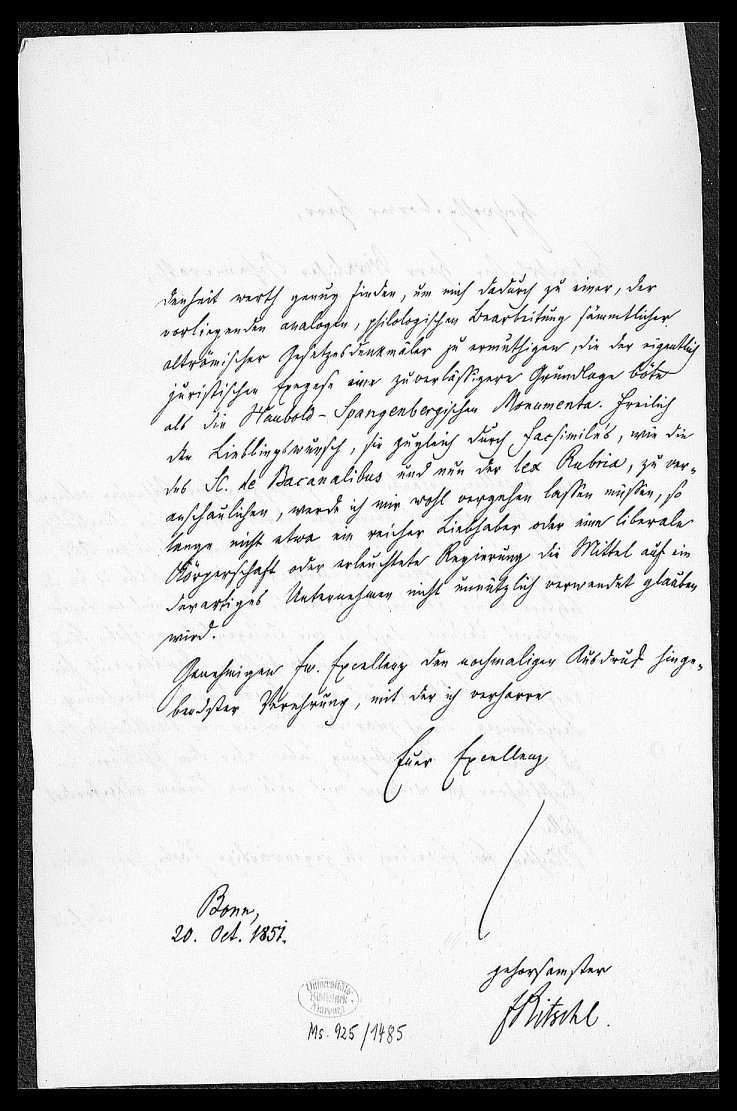 denheit werth genug finden, um mich dadurch zu einer, der
vorliegenden analogen, philologischen Bearbeitung sämmtlicher
altrömischer Gesetzesdenkmäler zu ermuthigen, die der eigentlich
juristischen Exegese eine zuverlässigere Grundlage böte
als die Haubold-Spangenbergischen Monumenta. Freilich
den Lieblingswunsch, sie zugleich durch Facsimile's, wie die
des Sc. de Bacanalibus und nun der lex Rubria, zu ver-
anschaulichen, werde ich mir wohl vergehen lassen müssen, so
lange nicht etwa ein reicher Liebhaber oder eine liberale
Körperschaft oder erleuchtete Regierung die Mittel auf ein
derartiges Unternehmen nicht unnützlich verwendet glauben
wird.
Genehmigen Ew. Excellenz den nochmaligen Ausdruck hinge-
bendster Verehrung, mit der ich verharre
Euer Excellenz
Bonn,
20. Oct. 1851.
gehorsamster
FRitschl.
Universitäts-
Bibliothek
Marburg
Ms. 925/1485